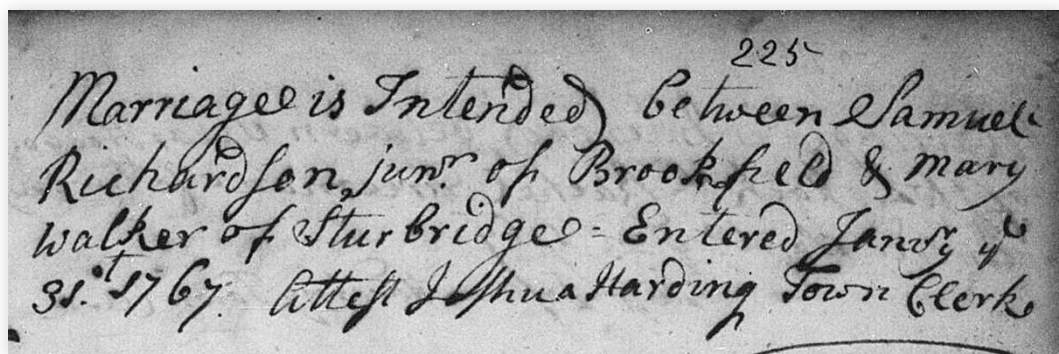 225
Marriage is Intended between Samuel
Richardson junr. of Brookfield & Mary
Walker of Sturbridge = Entered Janry ye
31.st 1767. Attest Joshua Harding Town Clerk